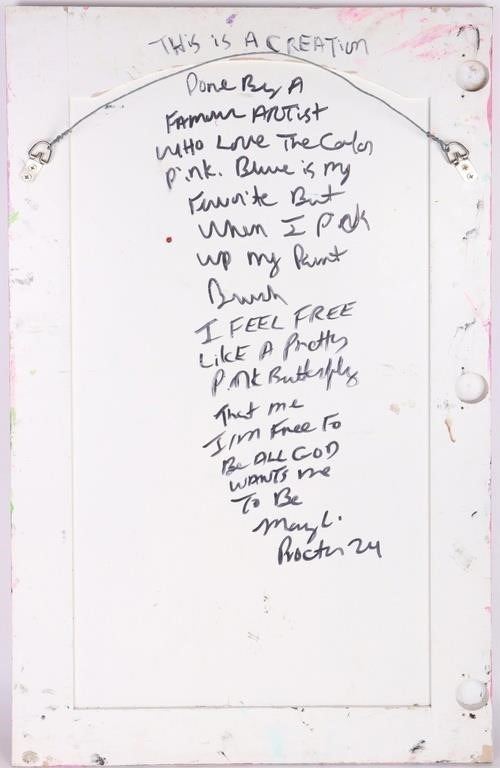 THIS IS A CREATION
Done By A
Famous ARTist
WHO Love The Color
Pink. Blue is my
Favorite But
When I Pick
up my Paint
Brush
I FEEL FREE
LIKE A Pretty
Pink Butterfly
That me
I'm Free To
Be ALL GOD
WANTS me
To Be
Mary L.
Proctor 24